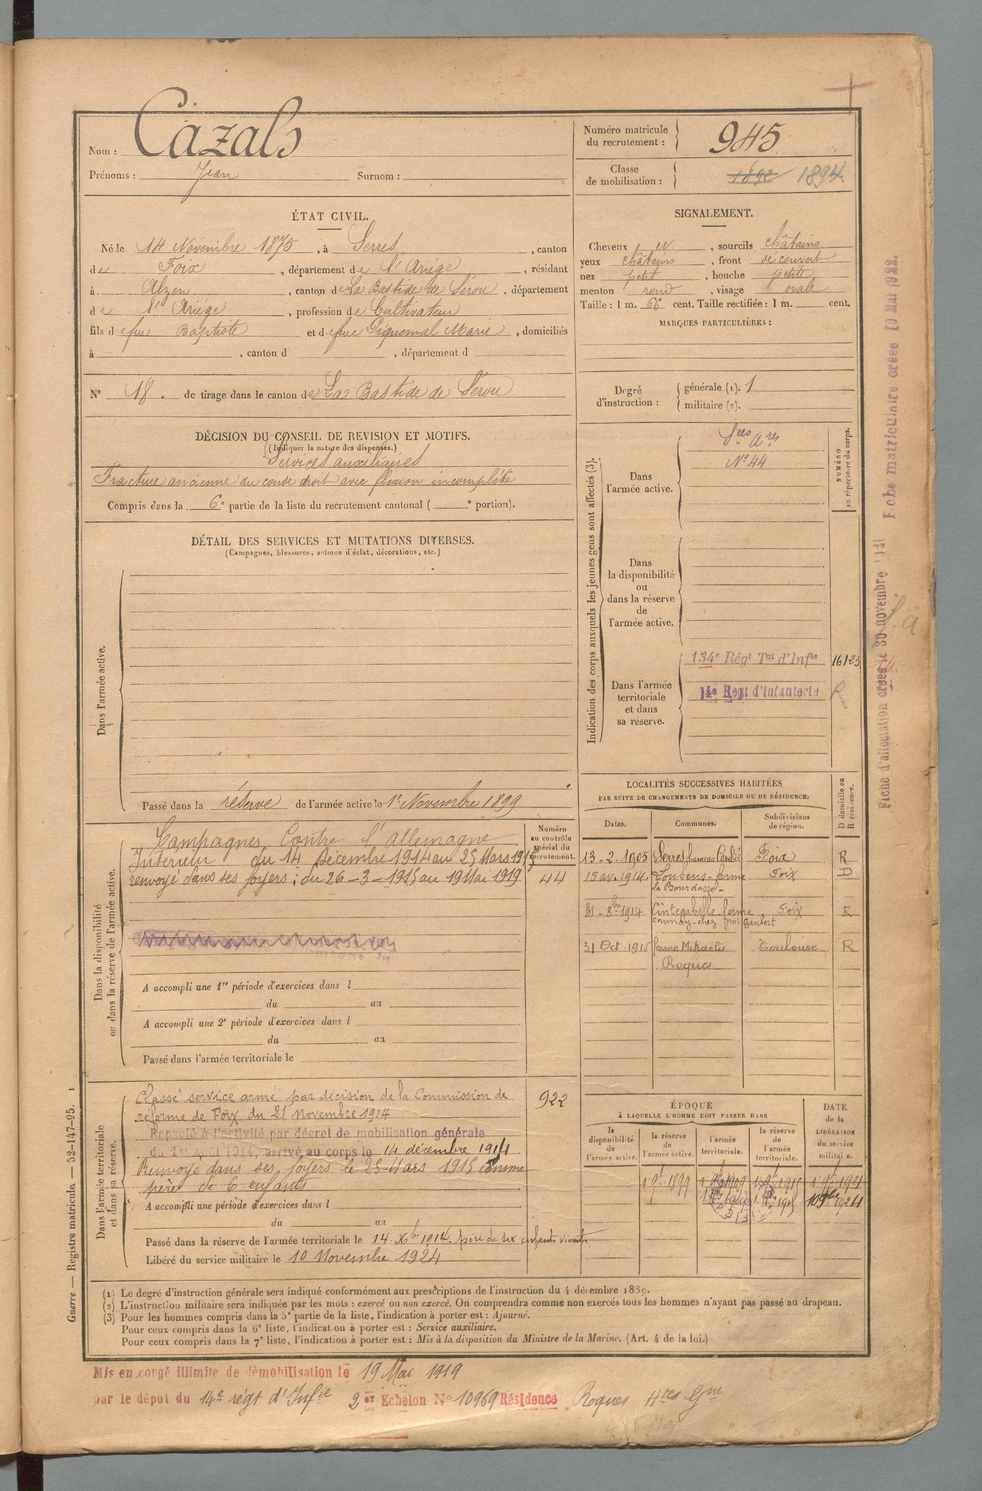 Nom : Cazals
Prénoms : Jean Surnom :
Numéro matricule du recrutement : 945
Classe de mobilisation : 1892 1894
ÉTAT CIVIL.
Né le 14 Novembre 1875, à Serres, canton
de Foix, département de l'Ariège, résidant
à Alzen, canton de La Bastide de Sérou, département
de l'Ariège, profession de Cultivateur
fils de feu Baptiste et de feue Piquemal Marie, domiciliés
à , canton d , département d
N° 18. de tirage dans le canton de La Bastide de Sérou
SIGNALEMENT.
Cheveux et , sourcils châtains
yeux châtains , front découvert
nez petit , bouche petite
menton rond , visage ovale
Taille : 1 m. 66 cent. Taille rectifiée : 1 m. cent.
MARQUES PARTICULIÈRES :
Degré d'instruction : générale (1). 1
militaire (2).
DÉCISION DU CONSEIL DE REVISION ET MOTIFS.
(Indiquer la nature des dispenses.)
Services auxiliaires
Fracture ancienne du coude droit avec flexion incomplète
Compris dans la 6e partie de la liste du recrutement cantonal ( e portion).
DÉTAIL DES SERVICES ET MUTATIONS DIVERSES.
(Campagnes, blessures, actions d'éclat, décorations, etc.)
Dans l'armée active.
Passé dans la réserve de l'armée active le 1er Novembre 1899
Indication des corps auxquels les jeunes gens sont affectés (3).
NUMÉRO au répertoire du corps.
Dans l'armée active.
Sces Ares
N° 44
Dans la disponibilité ou dans la réserve de l'armée active.
Dans l'armée territoriale et dans sa réserve.
134e Régt Tal d'Infie 16123
14e Regt d'Infanterie R
Dans la disponibilité ou dans la réserve de l'armée active.
Campagnes Contre l'Allemagne
Intérieur du 14 décembre 1914 au 25 Mars 1915
renvoyé dans ses foyers ; du 26-3-1915 au 19 Mai 1919
Numéro au contrôle spécial du recrutement.
44
A accompli une 1re période d'exercices dans l
du au
A accompli une 2e période d'exercices dans l
du au
Passé dans l'armée territoriale le
LOCALITÉS SUCCESSIVES HABITÉES
PAR SUITE DE CHANGEMENTS DE DOMICILE OU DE RÉSIDENCE.
Dates. Communes. Subdivisions de région. D domicile ou R résidence.
13-2-1905 Serres hameau Foix R
15 av. 1914 Loubens-ferme Foix D
la Bourdasse
31-8bre 1914 Cintegabelle-ferme Foix R
31 Oct. 1915 Toulouse R
Roques
Dans l'armée territoriale et dans sa réserve.
Classé service armé par décision de la Commission de
réforme de Foix du 21 Novembre 1914
Rappelé à l'activité par décret de mobilisation générale
du 1er août 1914, arrivé au corps le 14 décembre 1914
Renvoyé dans ses foyers le 25 Mars 1915 comme
père de 6 enfants
922
A accompli une période d'exercices dans l
du au
Passé dans la réserve de l'armée territoriale le 14 Xbre 1914. père de six enfants vivants
Libéré du service militaire le 10 Novembre 1924
ÉPOQUE
À LAQUELLE L'HOMME DOIT PASSER DANS
la disponibilité de l'armée active. la réserve de l'armée active. l'armée territoriale. la réserve de l'armée territoriale.
DATE de la LIBÉRATION du service militaire.
(1) Le degré d'instruction générale sera indiqué conformément aux prescriptions de l'instruction du 4 décembre 1889.
(2) L'instruction militaire sera indiquée par les mots : exercé ou non exercé. On comprendra comme non exercés tous les hommes n'ayant pas passé au drapeau.
(3) Pour les hommes compris dans la 5e partie de la liste, l'indication à porter est : Ajourné.
Pour ceux compris dans la 6e liste, l'indication à porter est : Service auxiliaire.
Pour ceux compris dans la 7e liste, l'indication à porter est : Mis à la disposition du Ministre de la Marine. (Art. 4 de la loi.)
Mis en congé illimité de démobilisation le 19 Mai 1919
par le dépôt du 14e régt d'Infie 2er Echelon N° 10969 Résidence Roques Hte Gne
Guerre — Registre matricule. — 52-147-95.
Fiche matriculaire créée 19 Mai 1922.
Fiche d'affectation créée le 30 novembre